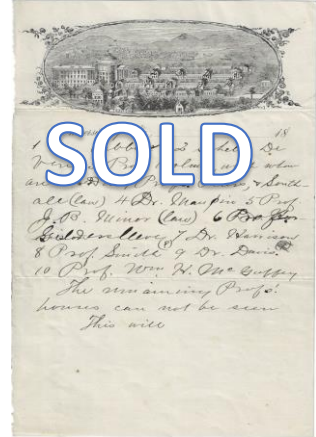 18
SOLD
1 2 Schele De
Vere Prof.
Prof. & South-
all (law) 4 Dr. Maupin 5 Prof
J. B. Minor (law) 6 Prof
Gildersleeve 7 Dr. Harrison
8 Prof. Smith 9 Dr. Davis
10 Prof. Wm H. McGuffey
The remaining Profs'
houses can not be seen
This will